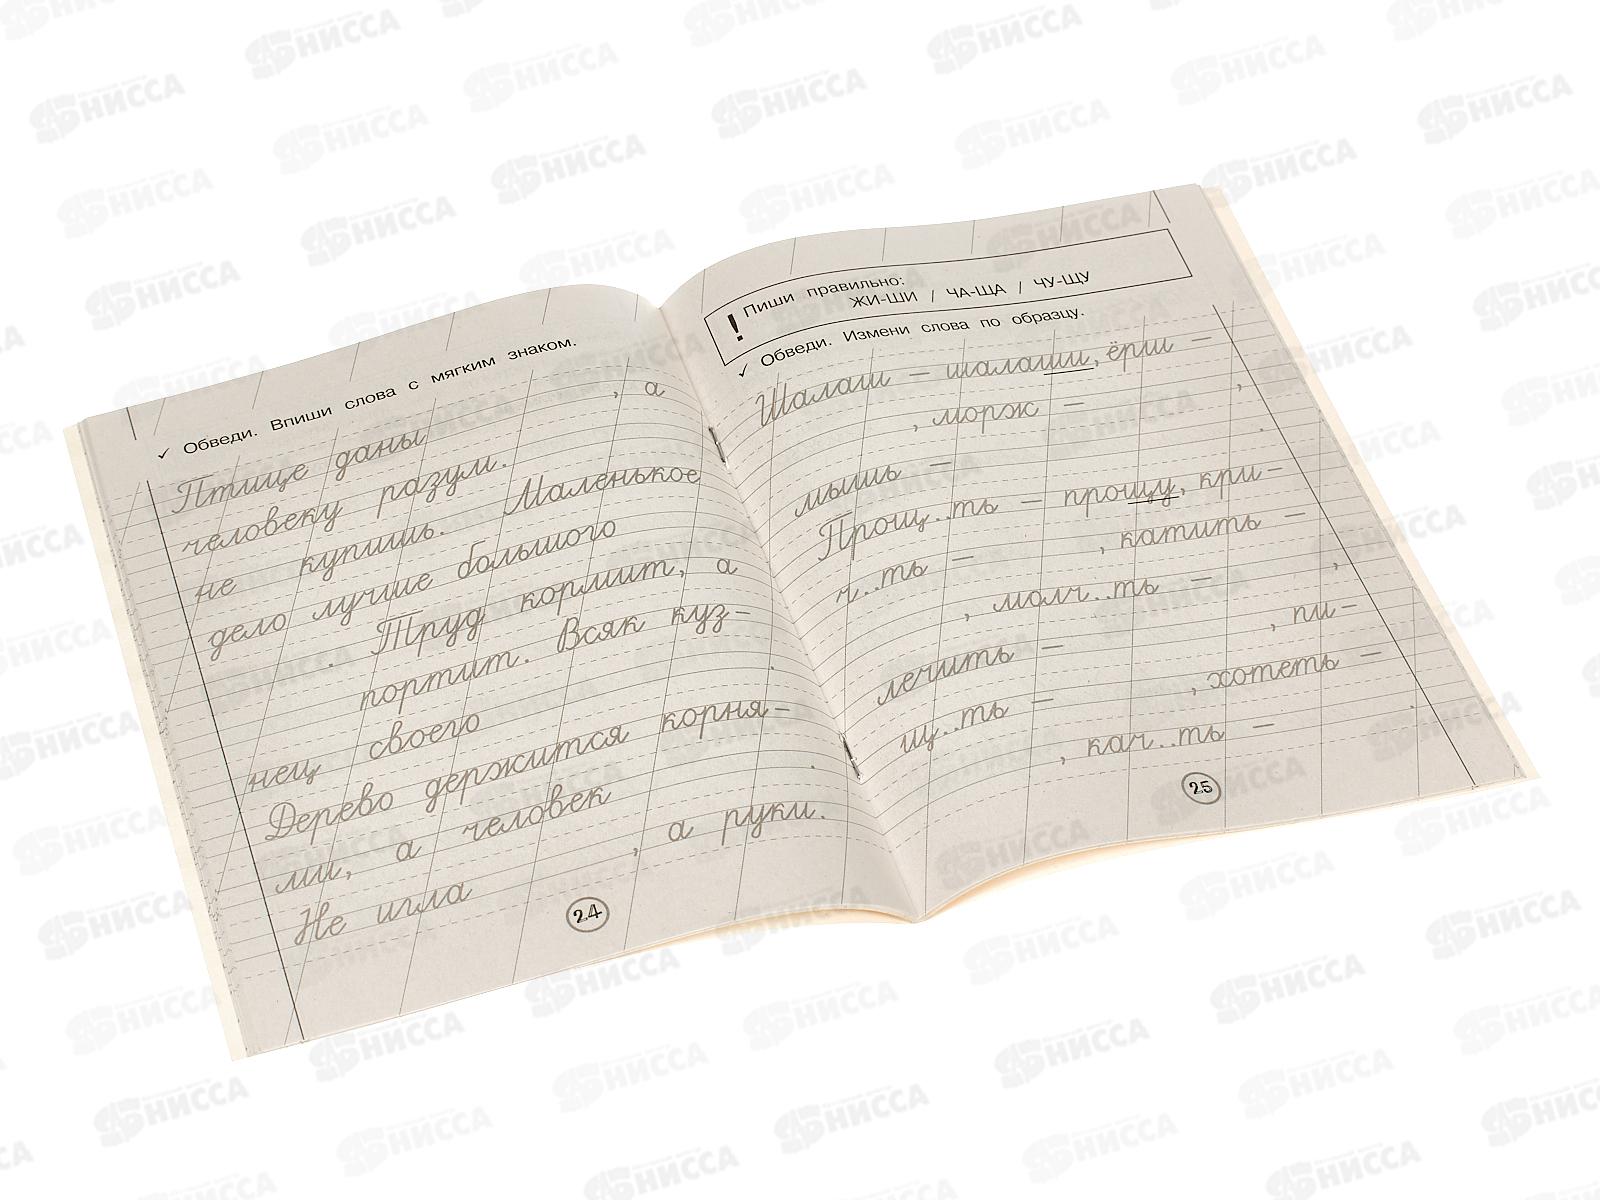 ✓ Обведи. Впиши слова с мягким знаком.
Птице даны , а
человеку разум.
не купишь. Маленькое
дело лучше большого
. Труд кормит, а
портит. Всяк куз-
нец своего .
Дерево держится корня-
ми, а человек .
Не игла , а руки.
24
! Пиши правильно:
ЖИ-ШИ / ЧА-ЩА / ЧУ-ЩУ
✓ Обведи. Измени слова по образцу.
Шалаш – шалаши, ёрш –
, морж – ,
мышь – .
Прощ..ть – прощу, кри-
ч..ть – , катить –
, молч..ть – ,
лечить – , пи-
щ..ть – , хотеть –
, кач..ть – .
25
АБНИССА